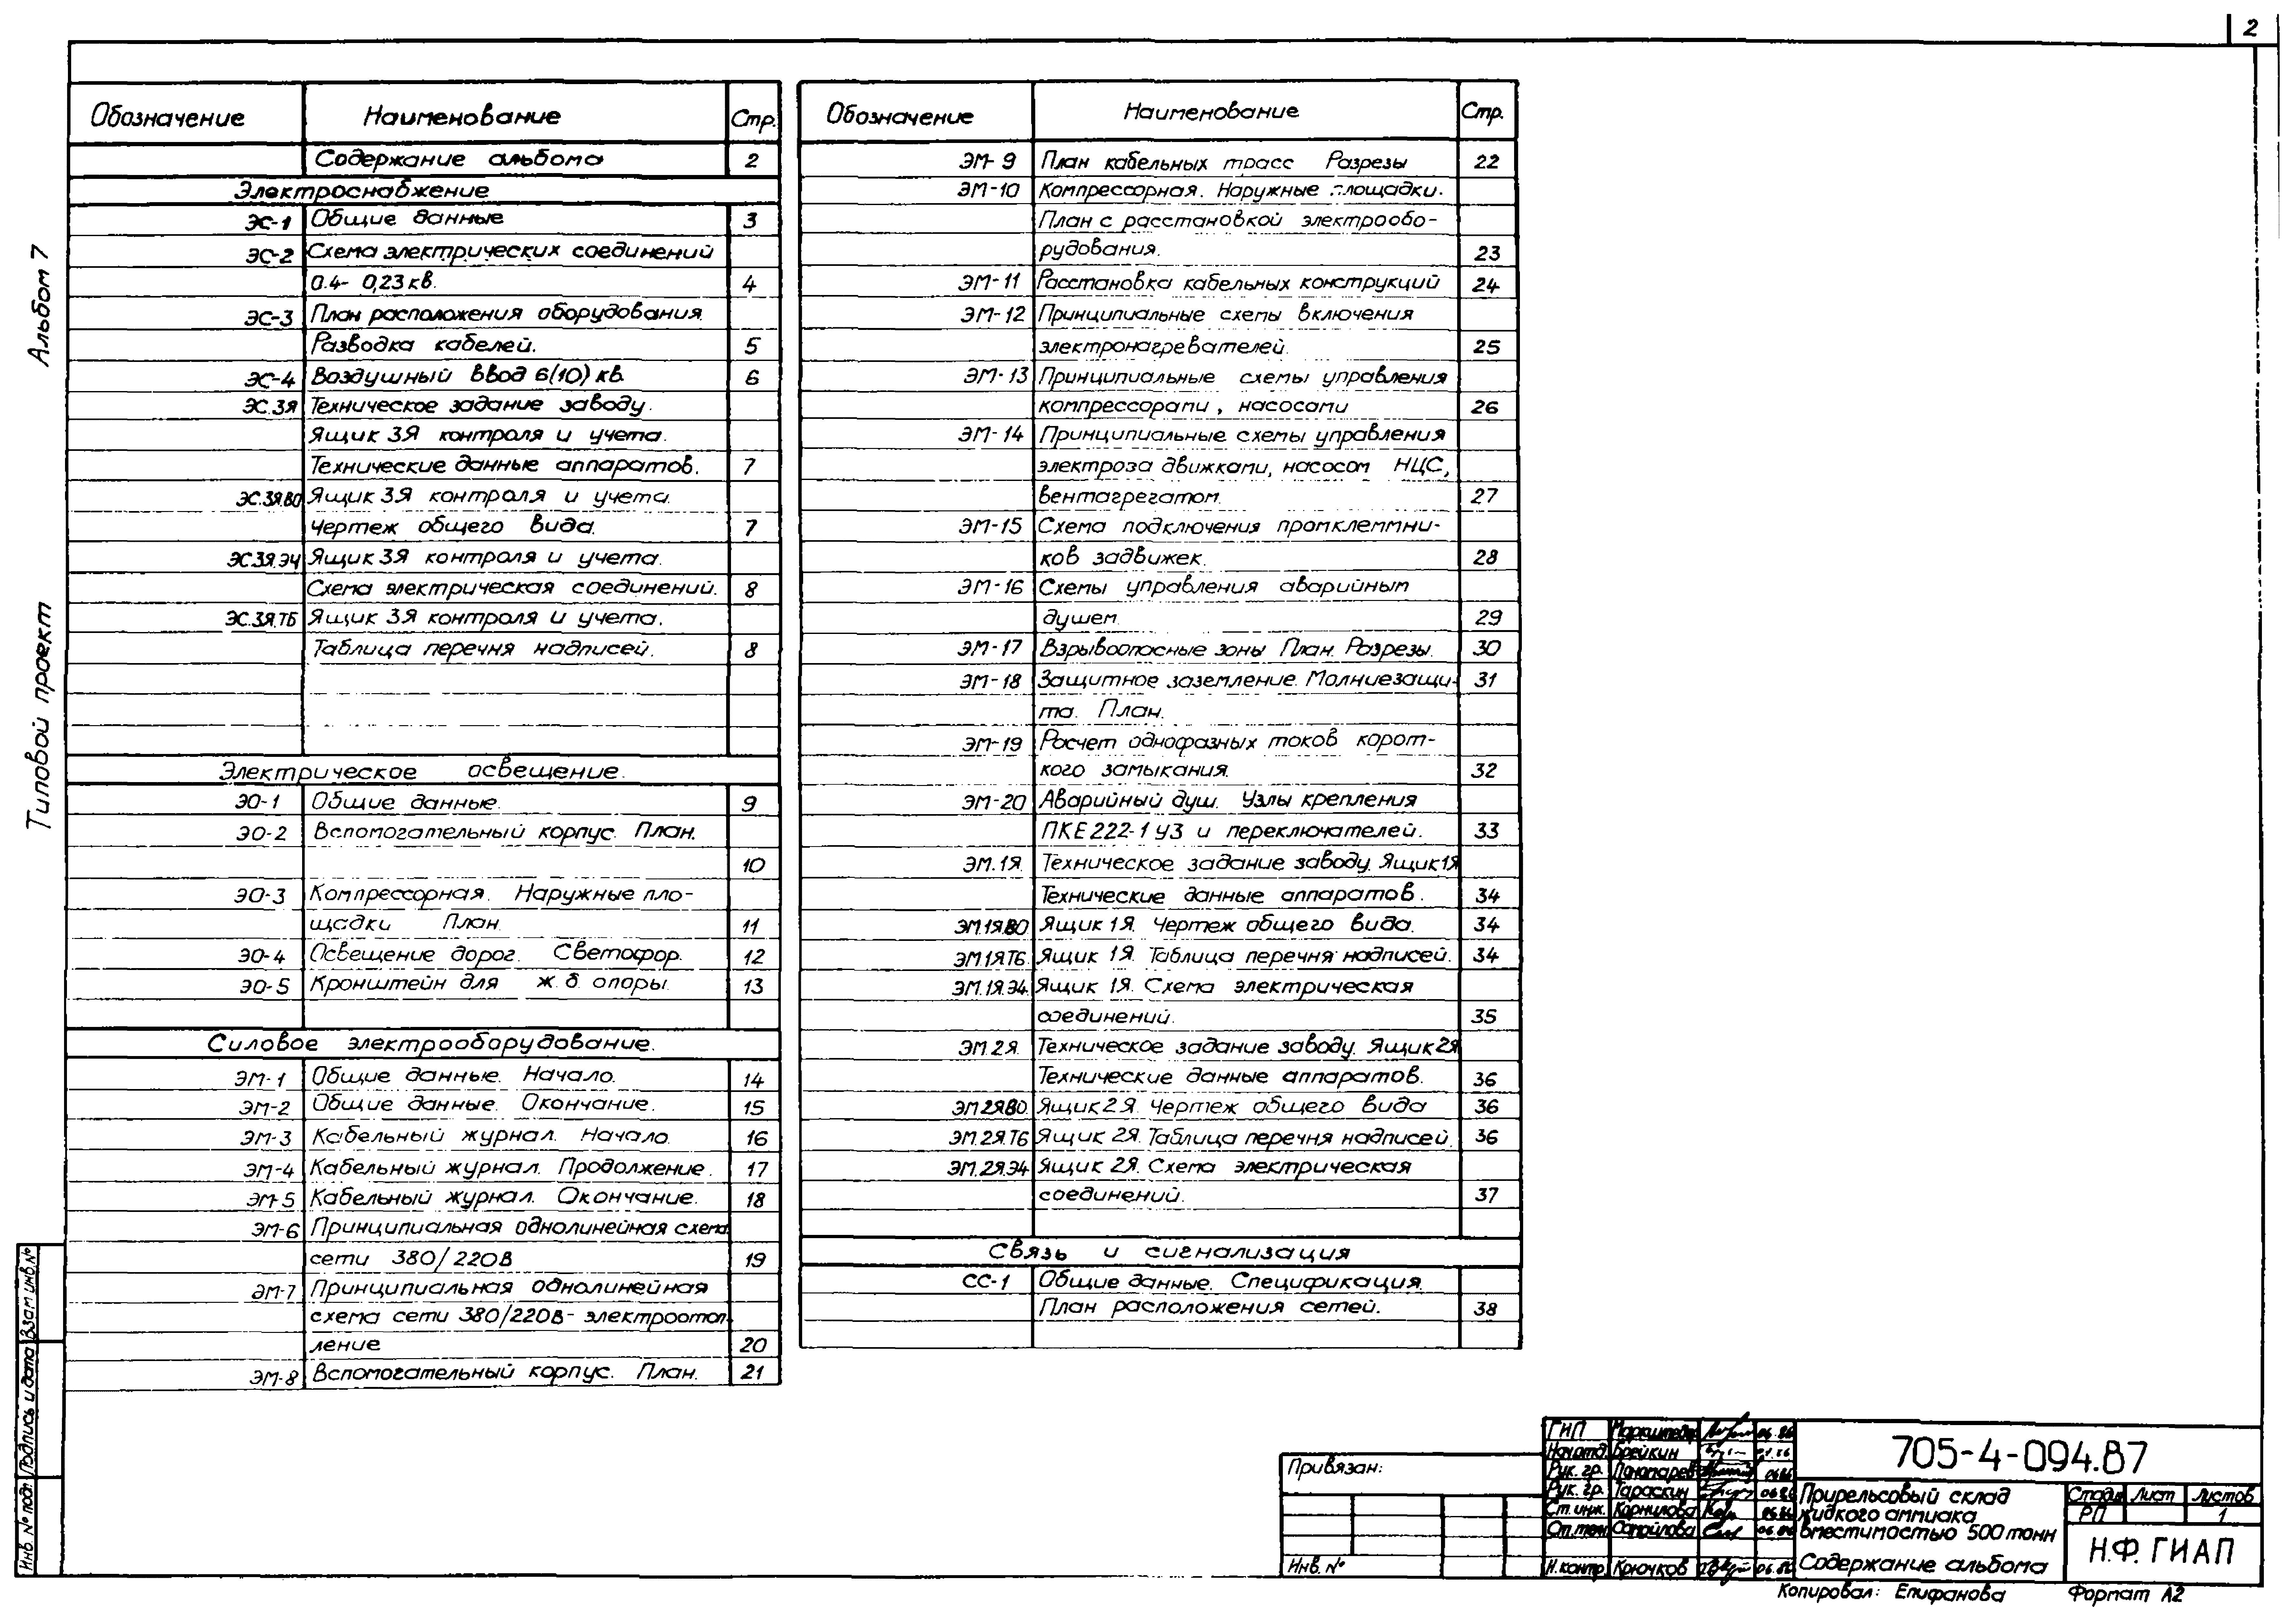 2
Альбом 7
Типовой проект
Обозначение Наименование Стр.
Содержание альбома 2
Электроснабжение
ЭС-1 Общие данные 3
ЭС-2 Схема электрических соединений
0.4- 0,23 кв. 4
ЭС-3 План расположения оборудования
Разводка кабелей. 5
ЭС-4 Воздушный ввод 6(10) кв 6
ЭС.3Я Техническое задание заводу.
Ящик 3Я контроля и учета.
Технические данные аппаратов. 7
ЭС.3Я.ВО Ящик 3Я контроля и учета.
Чертеж общего вида. 7
ЭС.3Я.Э4 Ящик 3Я контроля и учета.
Схема электрическая соединений. 8
ЭС.3Я.ТБ Ящик 3Я контроля и учета.
Таблица перечня надписей. 8
Электрическое освещение.
ЭО-1 Общие данные. 9
ЭО-2 Вспомогательный корпус. План.
10
ЭО-3 Компрессорная. Наружные пло-
щадки План. 11
ЭО-4 Освещение дорог. Светофор. 12
ЭО-5 Кронштейн для ж.б. опоры. 13
Силовое электрооборудование.
ЭМ-1 Общие данные. Начало. 14
ЭМ-2 Общие данные. Окончание. 15
ЭМ-3 Кабельный журнал. Начало. 16
ЭМ-4 Кабельный журнал. Продолжение. 17
ЭМ-5 Кабельный журнал. Окончание. 18
ЭМ-6 Принципиальная однолинейная схема
сети 380/220В 19
ЭМ-7 Принципиальная однолинейная
схема сети 380/220В- электроотоп-
ление 20
ЭМ-8 Вспомогательный корпус. План. 21
Обозначение Наименование Стр.
ЭМ-9 План кабельных трасс Разрезы 22
ЭМ-10 Компрессорная. Наружные площадки.
План с расстановкой электрообо-
рудования. 23
ЭМ-11 Расстановка кабельных конструкций 24
ЭМ-12 Принципиальные схемы включения
электронагревателей. 25
ЭМ-13 Принципиальные схемы управления
компрессорами, насосами 26
ЭМ-14 Принципиальные схемы управления
электрозадвижками, насосом НЦС,
вентагрегатом. 27
ЭМ-15 Схема подключения промклеммни-
ков задвижек. 28
ЭМ-16 Схемы управления аварийным
душем. 29
ЭМ-17 Взрывоопасные зоны План. Разрезы. 30
ЭМ-18 Защитное заземление. Молниезащи- 31
та. План.
ЭМ-19 Расчет однофазных токов корот-
кого замыкания. 32
ЭМ-20 Аварийный душ. Узлы крепления
ПКЕ 222-1 У3 и переключателей. 33
ЭМ.1Я. Техническое задание заводу. Ящик 1Я
Технические данные аппаратов. 34
ЭМ.1Я.ВО Ящик 1Я. Чертеж общего вида. 34
ЭМ.1Я.ТБ. Ящик 1Я. Таблица перечня надписей. 34
ЭМ.1Я.Э4. Ящик 1Я. Схема электрическая
соединений. 35
ЭМ.2Я. Техническое задание заводу. Ящик 2Я
Технические данные аппаратов. 36
ЭМ.2Я.ВО. Ящик 2Я. Чертеж общего вида 36
ЭМ.2Я.ТБ Ящик 2Я. Таблица перечня надписей. 36
ЭМ.2Я.Э4 Ящик 2Я. Схема электрическая
соединений. 37
Связь и сигнализация
СС-1 Общие данные. Спецификация.
План расположения сетей. 38
Инв № подл. Подпись и дата Взам инв.№
Привязан:
Инв. №
ГИП 06.86
Нач.отд. Брейкин
Рук. гр. Пономарев 06.86
Рук. гр. Тараскин 06.86
Ст. инж. Корнилова 06.86
Ст. тех. Самойлова 06.86
Н.контр. Крючков 06.86
705-4-094.87
Прирельсовый склад
жидкого аммиака
вместимостью 500 тонн
Содержание альбома
Стадия Лист Листов
РП 1
Н.Ф. ГИАП
Копировал: Епифанова Формат А2